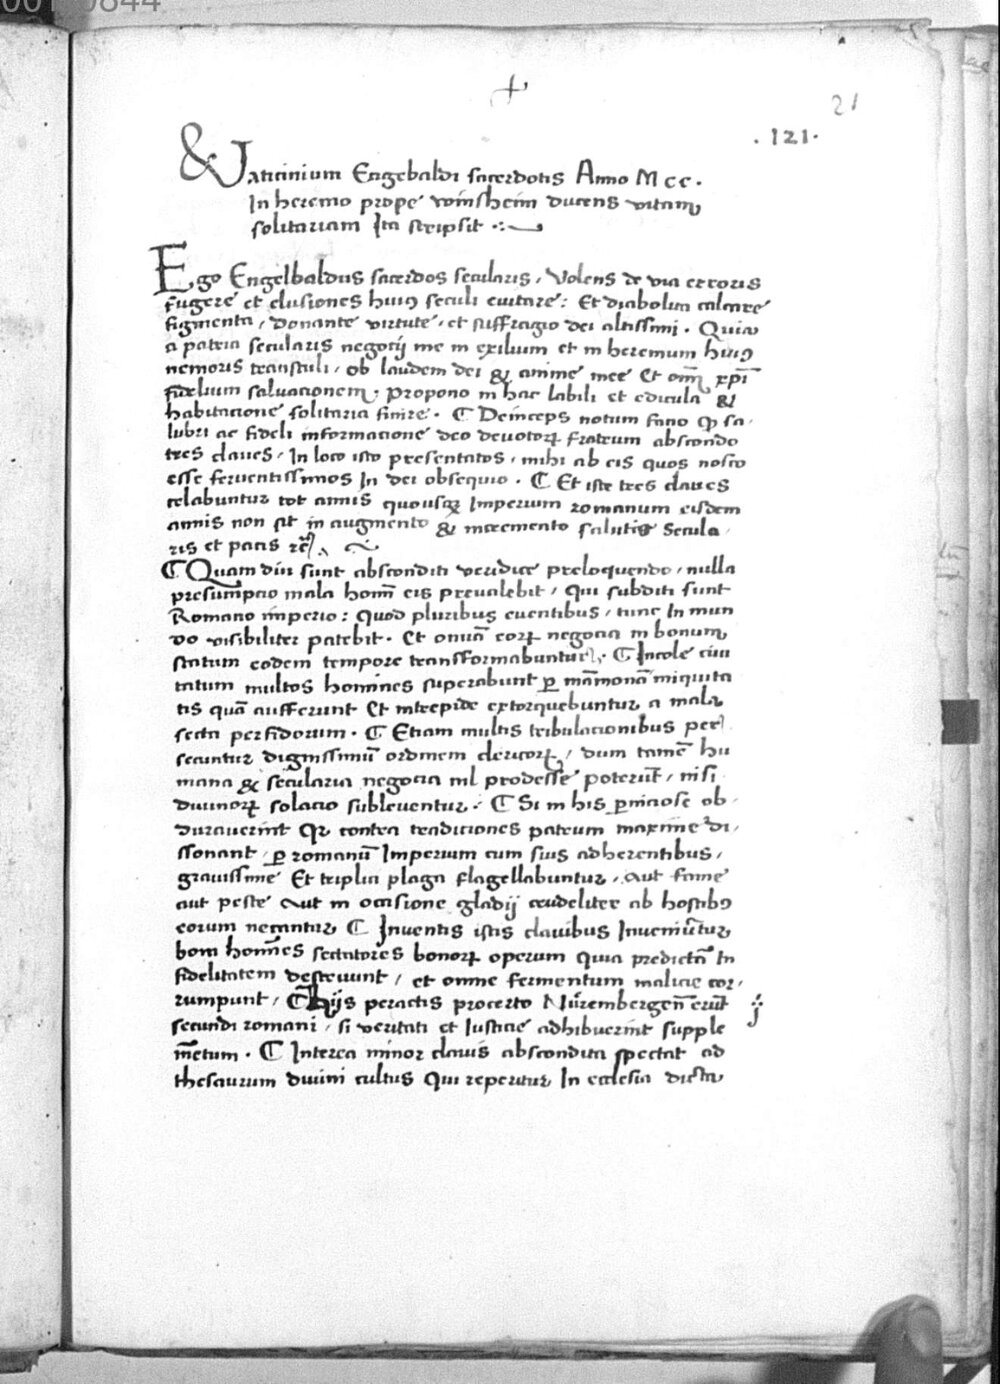 21
.121.
& Vaticinium Engebaldi sacerdotis Anno Mcc.
In heremo prope winsheim ducens vitam
solitariam Ita scripsit
Ego Engelbaldus sacerdos secularis, Volens de via erroris
fugere et elusiones huiꝰ seculi euitare: Et diabolica calcare
figmenta, donante virtute, et suffragio dei altissimi. Quia
a patria secularis negocij me in exilium et in heremum huiꝰ
nemoris transtuli, ob laudem dei & anime mee Et om̄ xp̄i
fidelium saluacionem, propono in hac labili et edicula &
habitacione solitaria finire. ¶ Deinceps notum facio ꝙ sa,
lubri ac fideli informacione deo deuotorꝝ fratrum abscondo
tres claues, In loco isto presentatos, mihi ab eis quos nosco
esse feruentissimos In dei obsequio. ¶ Et iste tres claues
celabuntur tot annis quousqꝫ Imperium romanum eisdem
annis non sit in augmento & incremento salutis Secula,
ris et pacis
¶ Quam diu sunt absconditi veridice preloquendo, nulla
presumpcio mala homi͞ eis preualebit, qui subditi sunt
Romano imperio: Quod pluribus euentibus, tunc In mun
do visibiliter patebit. Et omnia͞ eorꝝ negocia in bonum
statum eodem tempore transformabuntur, ¶ Incole ciui
tatum multos homines superabunt ꝑ ma͞mona͞ iniquita
tis qua͞ aufferunt Et intrepide extorquebuntur a mala
secta perfidorum. ¶ Etiam multis tribulacionibus per
secuntur dignissimu͞ ordinem clericorꝝ, dum tame͞ hu
mana & secularia negocia nil prodesse poteru͞t, nisi
diuinorꝝ solacio subleuentur. ¶ Si in his ꝑniciose ob,
durauerint Qꝛ contra tradiciones patrum maxime di,
ssonant, ꝑ romanu͞ Imperium cum suis adherentibus,
grauissime Et triplici plaga flagellabuntur, Aut fame
aut peste Aut in occisione gladij crudeliter ab hostibꝰ
eorum necantur ¶ Inuentis istis clauibus Inueniu͞tur
boni homi͞es sectatores bonorꝝ operum quia predicta͞ In
fidelitatem destruunt, et omne fermentum malicie cor,
rumpunt, ¶ Hijs peractis procerto Nu͞rembergen͞ eru͞t
secundi romani, si veritati et Iusticie adhibuerint supple
m͞etum. ¶ Interea minor clauis abscondita spectat ad
thesaurum diuini cultus Qui reperitur In ecclesia dicta